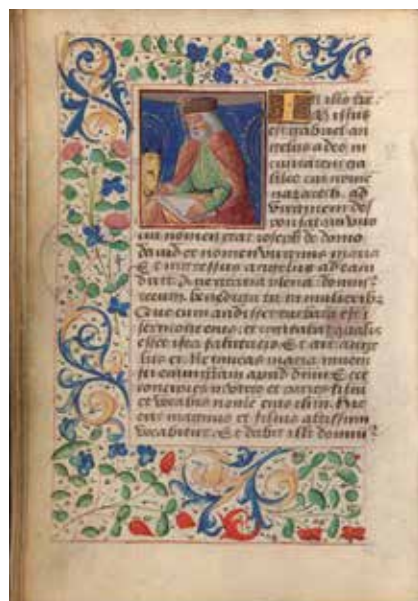 In illo tpr
missus
est gabriel an
gelus a deo in
civitatem ga
lilee cui nomē
nazareth. ad
virginem des
ponsatam viro
cui nomen erat ioseph de domo
david et nomen virginis maria
Et ingressus angelus ad eam
dixit. Ave gratia plena domin⁹
tecum. benedicta tu in mulieribꝫ
Que cum audisset turbata est ī
sermone eius. et cogitabat qualis
esset ista salutatio. Et ait ange
lus ei. Ne timeas maria inveni
sti enim gratiam apud dnm. Ecce
concipies in utero et paries filiū
et vocabis nomē eius ihm. Hic
erit magnus et filius altissimi
vocabitur. Et dabit illi domin⁹